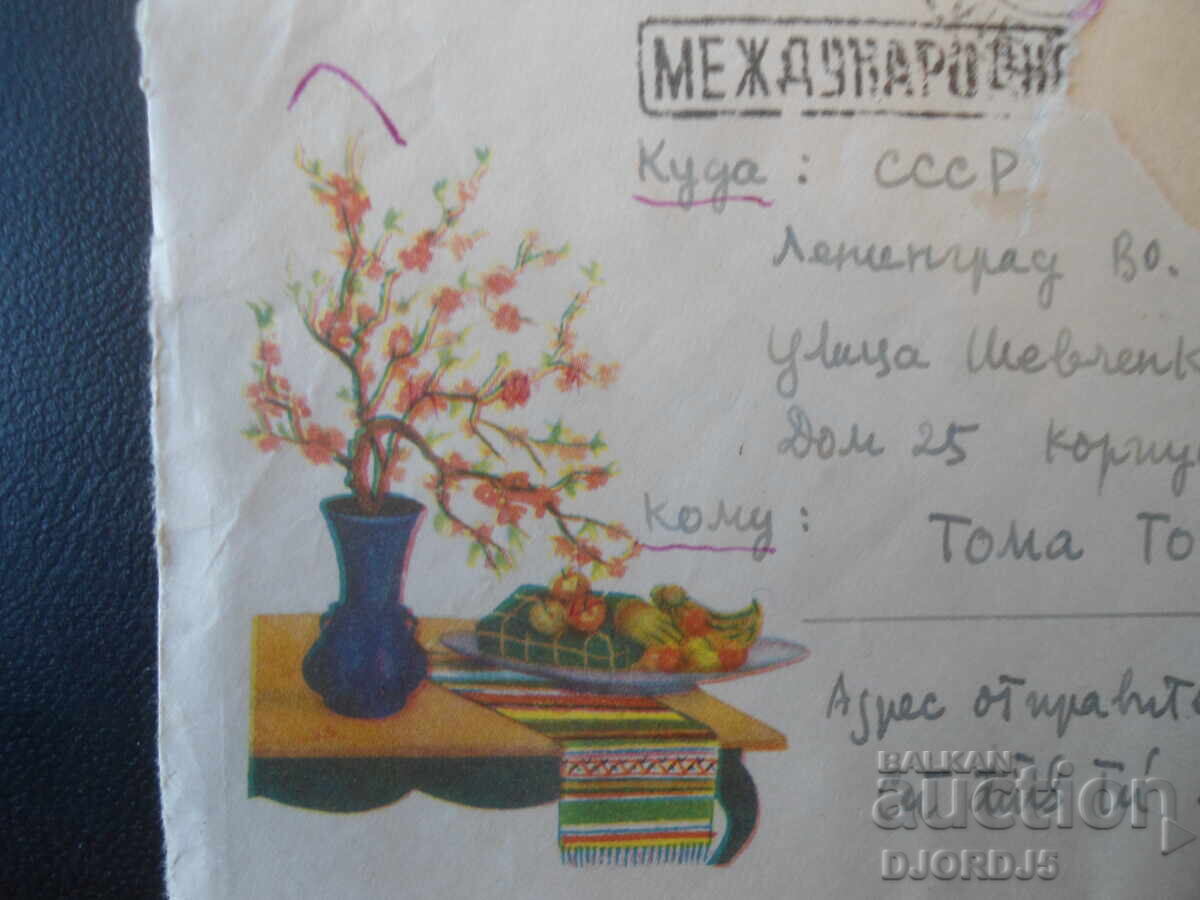 МЕЖДУНАРОДН
Куда: СССР
Ленинград ВО.
Улица Шевченк
Дом 25 корпу
Кому: Тома То
Адрес отправит
BALKAN
auction
DJORDJ5